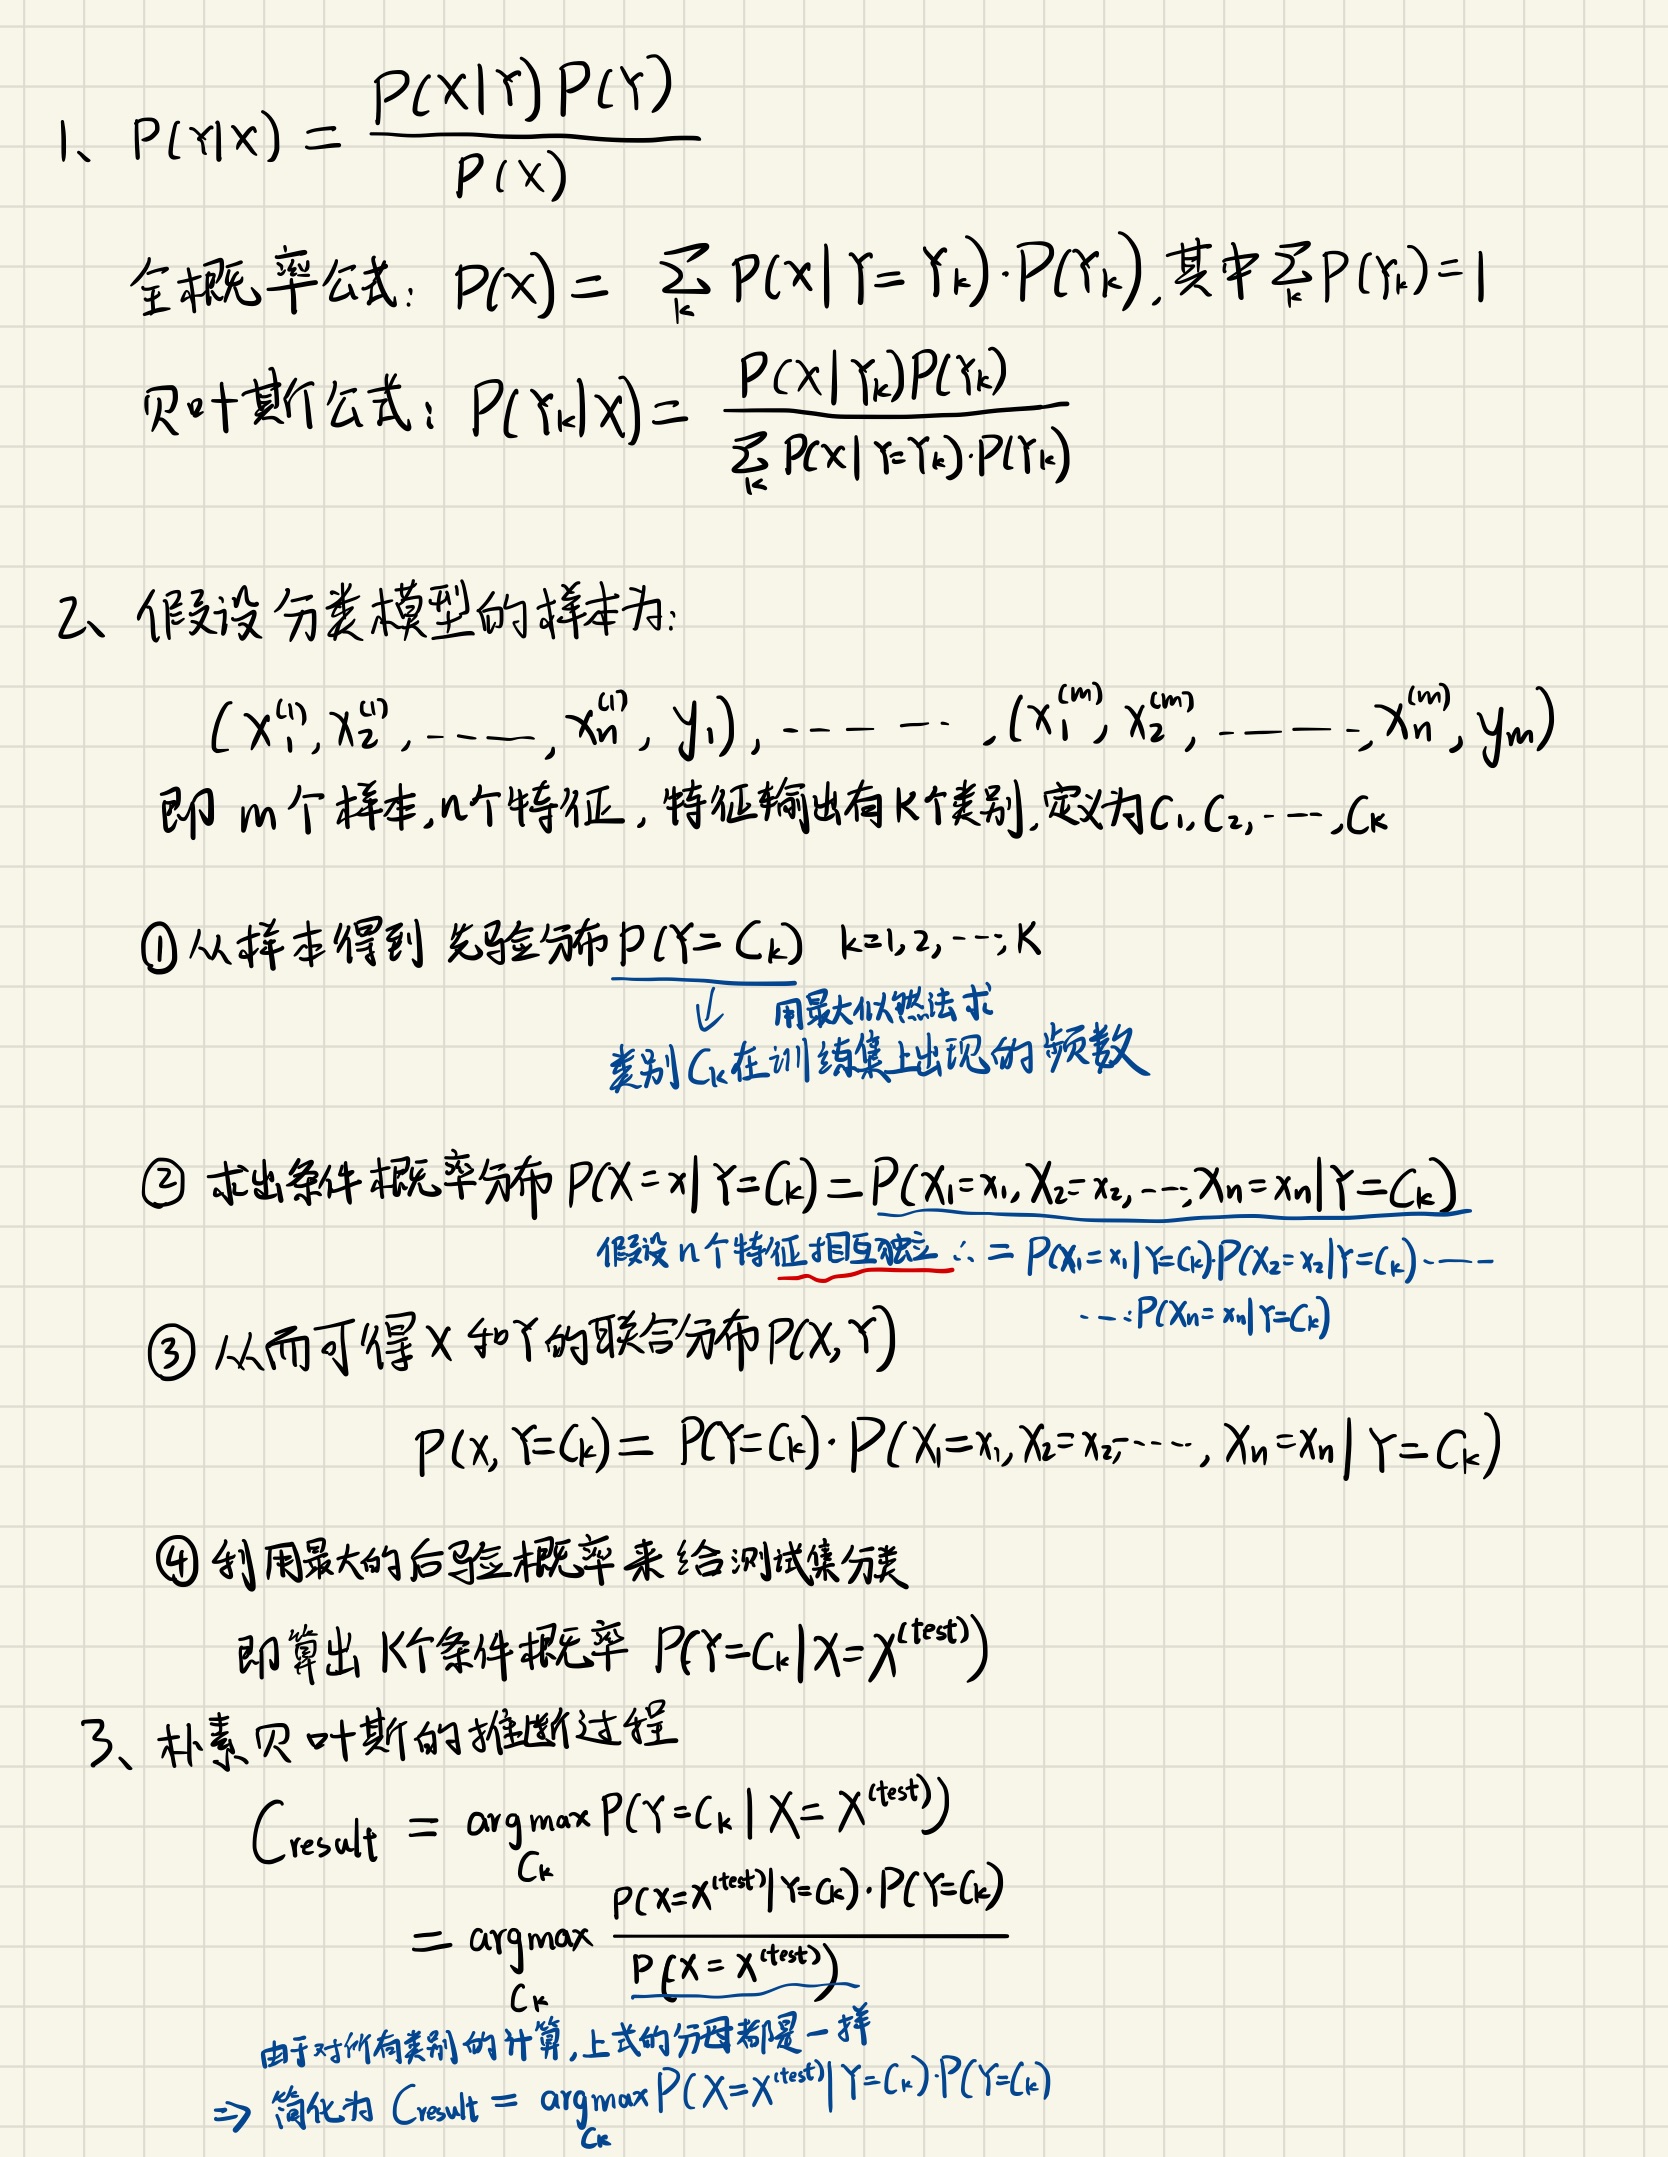 1、P(Y|X) = P(X|Y)P(Y) / P(X)
全概率公式：P(X) = ∑_k P(X|Y=Y_k)·P(Y_k),其中∑_k P(Y_k)=1
贝叶斯公式：P(Y_k|X) = P(X|Y_k)P(Y_k) / ∑_k P(X|Y=Y_k)·P(Y_k)
2、假设分类模型的样本为：
(x_1^(1), x_2^(1), ------, x_n^(1), y_1), ------ ,(x_1^(m), x_2^(m), ------, x_n^(m), y_m)
即 m个样本,n个特征, 特征输出有K个类别,定义为C_1, C_2, ---, C_K
①从样本得到 先验分布P(Y=C_k) k=1,2,---,K
↓ 用最大似然法求
类别C_k在训练集上出现的频数
② 求出条件概率分布 P(X=x|Y=C_k) = P(X_1=x_1, X_2=x_2, ---, X_n=x_n|Y=C_k)
假设n个特征相互独立 ∴ = P(X_1=x_1|Y=C_k)·P(X_2=x_2|Y=C_k)-----
----·P(X_n=x_n|Y=C_k)
③ 从而可得X和Y的联合分布P(X,Y)
P(X, Y=C_k) = P(Y=C_k)·P(X_1=x_1, X_2=x_2,-----, X_n=x_n|Y=C_k)
④ 利用最大的后验概率来给测试集分类
即算出 K个条件概率 P(Y=C_k|X=X^(test))
3、朴素贝叶斯的推断过程
C_result = argmax_{C_k} P(Y=C_k|X=X^(test))
= argmax_{C_k} P(X=X^(test)|Y=C_k)·P(Y=C_k) / P(X=X^(test))
由于对所有类别的计算,上式的分母都是一样
⇒ 简化为 C_result = argmax_{C_k} P(X=X^(test)|Y=C_k)·P(Y=C_k)